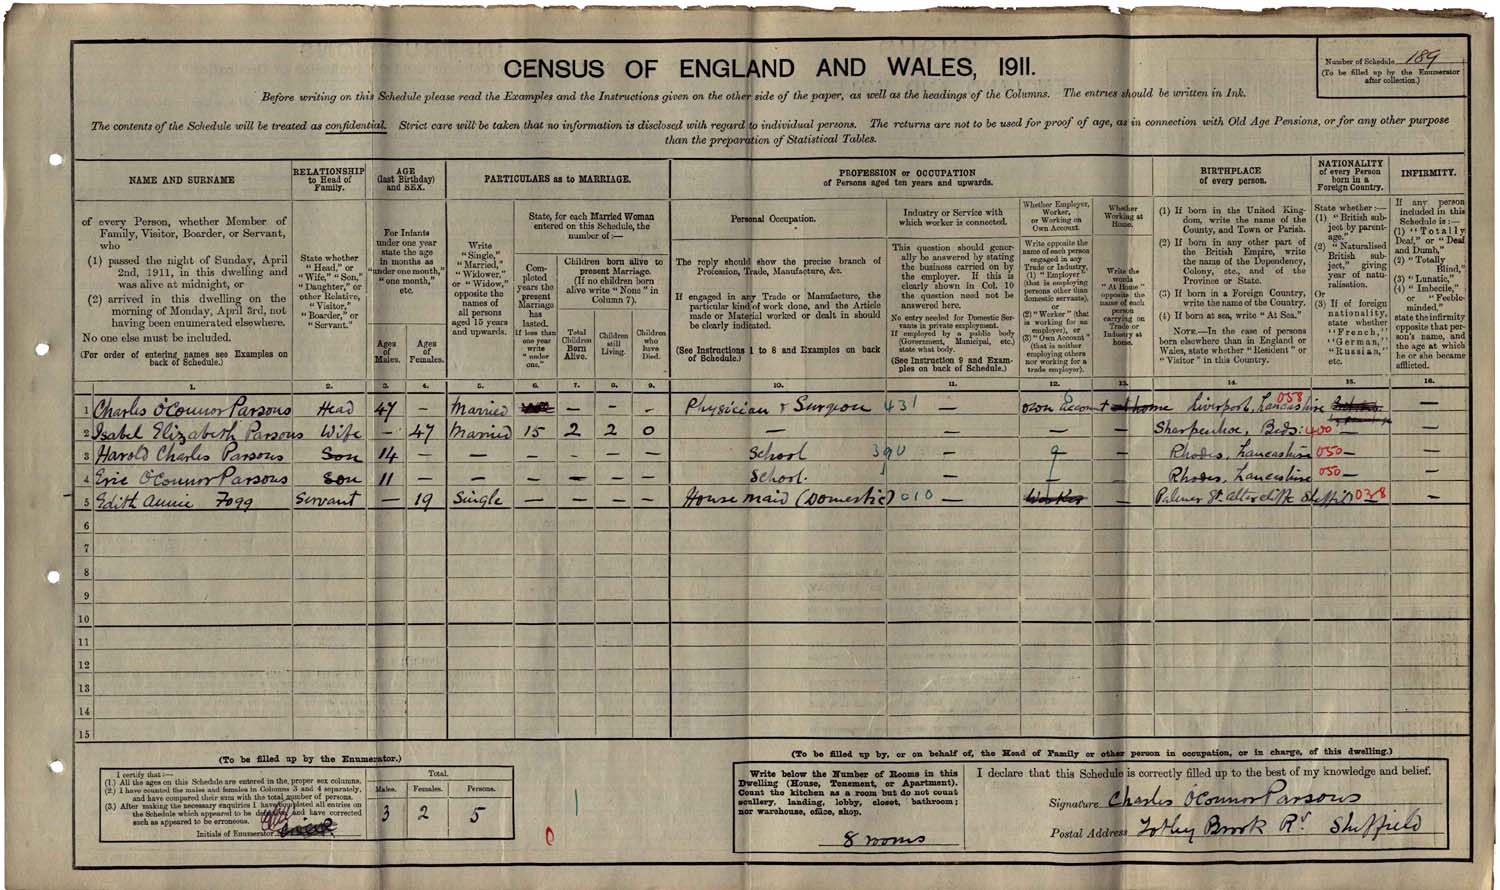 CENSUS OF ENGLAND AND WALES, 1911.
Number of Schedule 189
(To be filled up by the Enumerator
after collection.)
Before writing on this Schedule please read the Examples and the Instructions given on the other side of the paper, as well as the headings of the Columns. The entries should be written in Ink.
The contents of the Schedule will be treated as confidential. Strict care will be taken that no information is disclosed with regard to individual persons. The returns are not to be used for proof of age, as in connection with Old Age Pensions, or for any other purpose
than the preparation of Statistical Tables.
NAME AND SURNAME
of every Person, whether Member of
Family, Visitor, Boarder, or Servant,
who
(1) passed the night of Sunday, April
2nd, 1911, in this dwelling and
was alive at midnight, or
(2) arrived in this dwelling on the
morning of Monday, April 3rd, not
having been enumerated elsewhere.
No one else must be included.
(For order of entering names see Examples on
back of Schedule.)
RELATIONSHIP
to Head of
Family.
State whether
"Head," or
"Wife," "Son,"
"Daughter," or
other Relative,
"Visitor,"
"Boarder," or
"Servant."
AGE
(last Birthday)
and SEX.
For Infants
under one year
state the age
in months as
"under one month,"
"one month,"
etc.
Ages
of
Males.
Ages
of
Females.
PARTICULARS as to MARRIAGE.
Write
"Single,"
"Married,"
"Widower,"
or "Widow,"
opposite the
names of
all persons
aged 15 years
and upwards.
State, for each Married Woman
entered on this Schedule, the
number of:—
Completed
years the
present
Marriage
has
lasted.
If less than
one year
write
"under
one."
Children born alive to
present Marriage.
(If no children born
alive write "None" in
Column 7).
Total
Children
Born
Alive.
Children
still
Living.
Children
who
have
Died.
PROFESSION or OCCUPATION
of Persons aged ten years and upwards.
Personal Occupation.
The reply should show the precise branch of
Profession, Trade, Manufacture, &c.
If engaged in any Trade or Manufacture, the
particular kind of work done, and the Article
made or Material worked or dealt in should
be clearly indicated.
(See Instructions 1 to 8 and Examples on back
of Schedule.)
Industry or Service with
which worker is connected.
This question should generally
be answered by stating
the business carried on by
the employer. If this is
clearly shown in Col. 10
the question need not be
answered here.
No entry needed for Domestic Servants
in private employment.
If employed by a public body
(Government, Municipal, etc.)
state what body.
(See Instruction 9 and Examples
on back of Schedule.)
Whether Employer,
Worker,
or Working on
Own Account.
Write opposite the
name of each person
engaged in any
Trade or Industry,
(1) "Employer"
(that is employing
persons other than
domestic servants),
or
(2) "Worker" (that
is working for an
employer), or
(3) "Own Account"
(that is neither
employing others
nor working for a
trade employer).
Whether
Working at
Home.
Write the
words
"At Home"
opposite the
name of each
person
carrying on
Trade or
Industry at
home.
BIRTHPLACE
of every person.
(1) If born in the United Kingdom,
write the name of the
County, and Town or Parish.
(2) If born in any other part of
the British Empire, write
the name of the Dependency,
Colony, etc., and of the
Province or State.
(3) If born in a Foreign Country,
write the name of the Country.
(4) If born at sea, write "At Sea."
NOTE.—In the case of persons
born elsewhere than in England or
Wales, state whether "Resident" or
"Visitor" in this Country.
NATIONALITY
of every Person
born in a
Foreign Country.
State whether:—
(1) "British subject
by parentage,"
(2) "Naturalised
British subject,"
giving
year of naturalisation.
Or
(3) If of foreign
nationality,
state whether
"French,"
"German,"
"Russian,"
etc.
INFIRMITY.
If any person
included in this
Schedule is:—
(1) "Totally
Deaf," or "Deaf
and Dumb,"
(2) "Totally
Blind,"
(3) "Lunatic,"
(4) "Imbecile,"
or "Feeble-minded,"
state the infirmity
opposite that person's
name, and
the age at which
he or she became
afflicted.
1. 2. 3. 4. 5. 6. 7. 8. 9. 10. 11. 12. 13. 14. 15. 16.
1 Charles O'Connor Parsons Head 47 – Married – – – Physician & Surgeon 431 – own Account at home Liverpool, Lancashire 058 –
2 Isabel Elizabeth Parsons Wife – 47 Married 15 2 2 0 – – – – Sharpenhoe, Beds: 400 – –
3 Harold Charles Parsons Son 14 – – – – – – School 390 – – Rhodes, Lancashire 050 – –
4 Eric O'Connor Parsons Son 11 – – – – – – School. – – Rhodes, Lancashire 050 – –
5 Edith Annie Fogg Servant – 19 Single – – – – House maid (Domestic) 010 – Worker – Palmer St. Attercliffe Sheffield 038 – –
6
7
8
9
10
11
12
13
14
15
(To be filled up by the Enumerator.)
I certify that:—
(1.) All the ages on this Schedule are entered in the proper sex columns.
(2.) I have counted the males and females in Columns 3 and 4 separately,
and have compared their sum with the total number of persons.
(3.) After making the necessary enquiries I have completed all entries on
the Schedule which appeared to be defective, and have corrected
such as appeared to be erroneous.
Initials of Enumerator
Total.
Males. Females. Persons.
3 2 5
(To be filled up by, or on behalf of, the Head of Family or other person in occupation, or in charge, of this dwelling.)
Write below the Number of Rooms in this
Dwelling (House, Tenement, or Apartment).
Count the kitchen as a room but do not count
scullery, landing, lobby, closet, bathroom;
nor warehouse, office, shop.
8 rooms
I declare that this Schedule is correctly filled up to the best of my knowledge and belief.
Signature Charles O'Connor Parsons
Postal Address Totley Brook Rd Sheffield